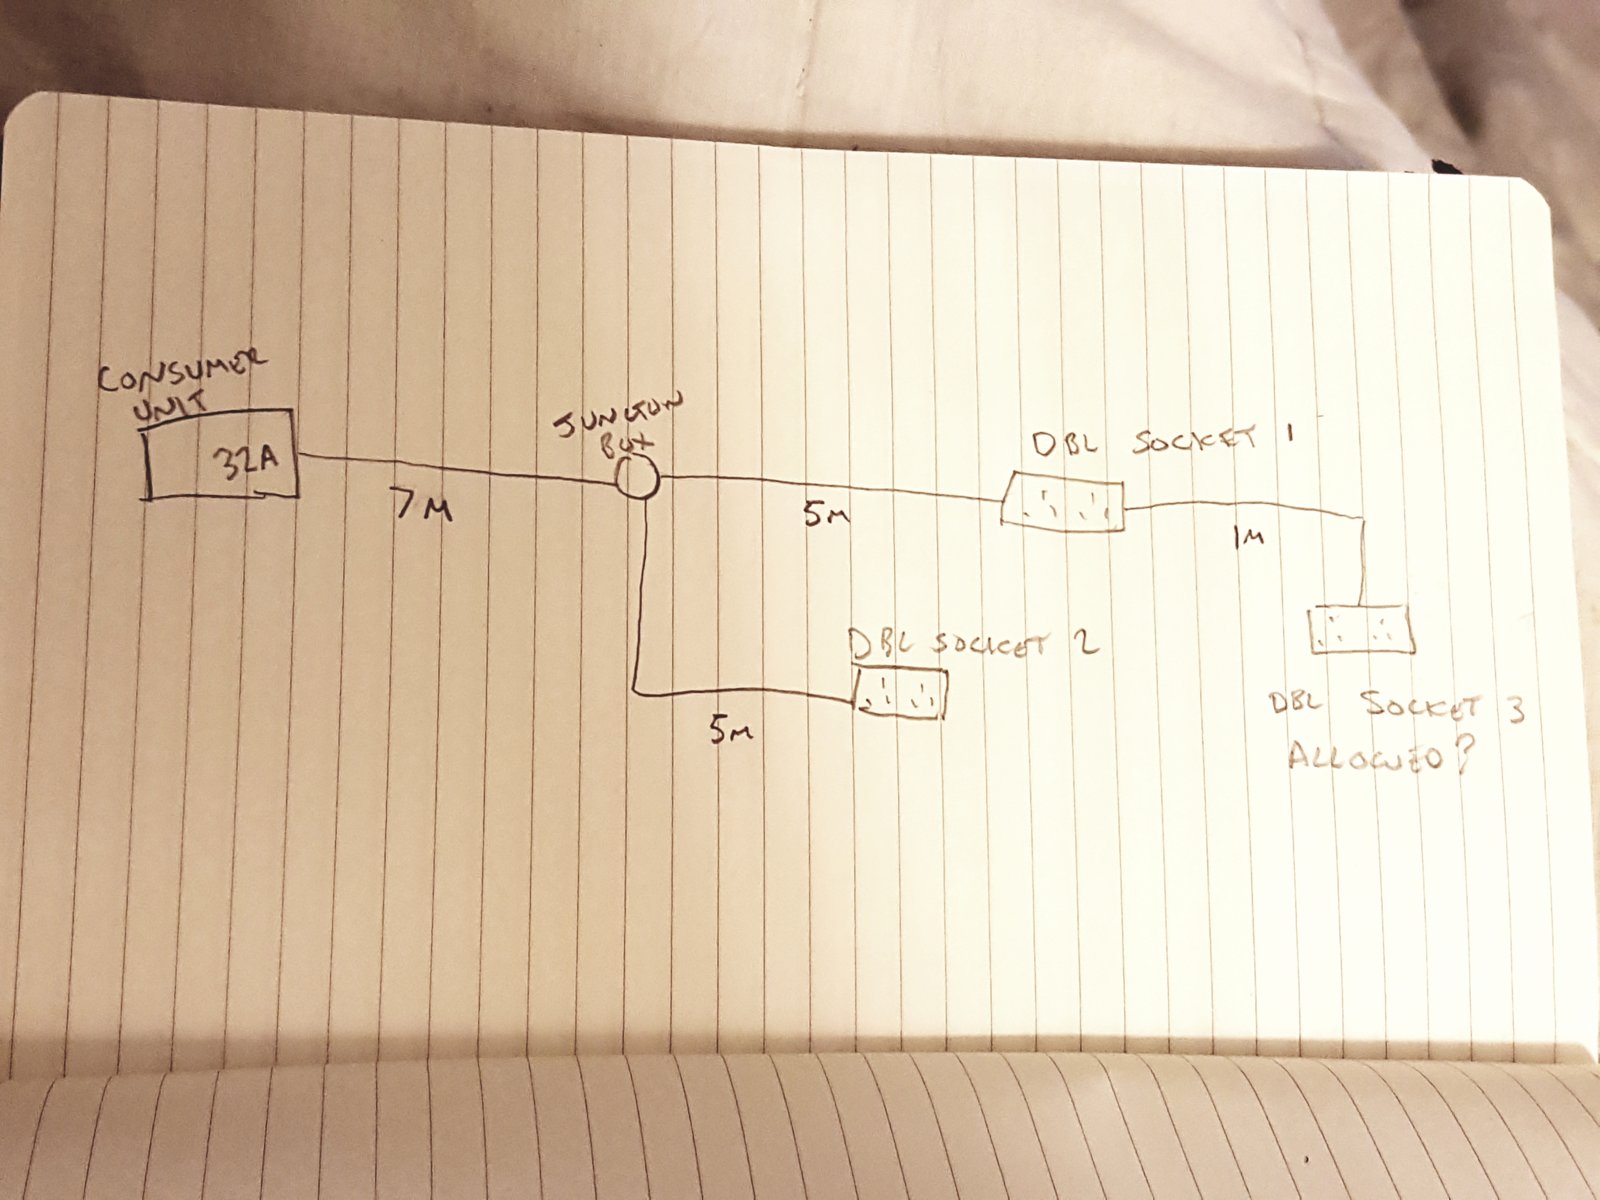 CONSUMER
UNIT
32A
7M
JUNCTION
BOX
5M
DBL SOCKET 1
1M
DBL SOCKET 2
5M
DBL SOCKET 3
ALLOWED?